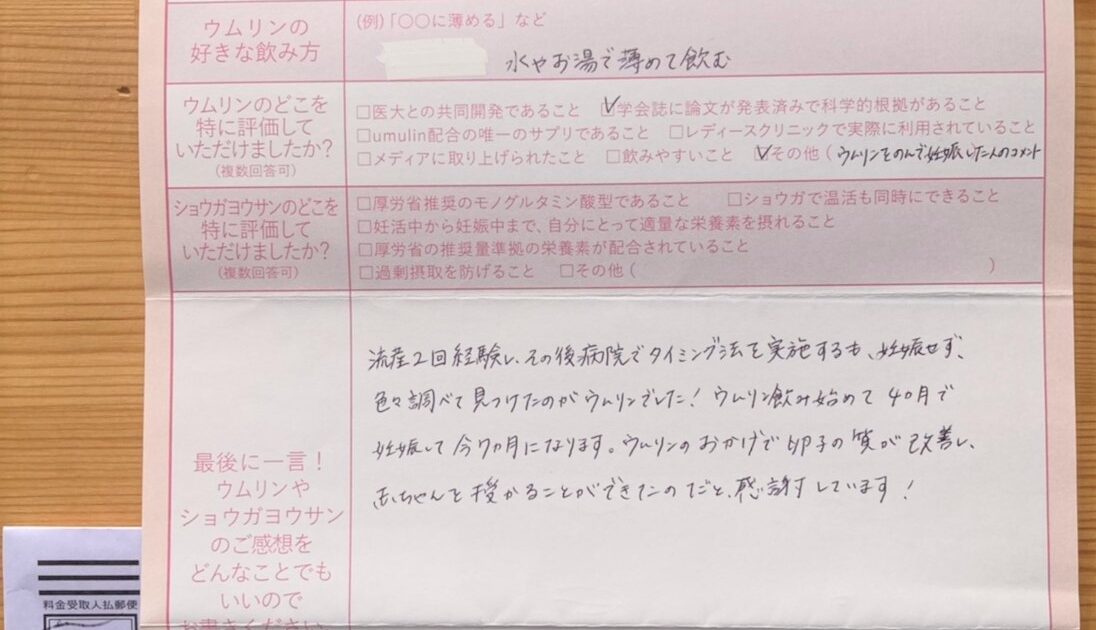 ウムリンの
好きな飲み方
(例)「〇〇に薄める」など
水やお湯で薄めて飲む
ウムリンのどこを
特に評価して
いただけましたか?
(複数回答可)
□医大との共同開発であること ☑学会誌に論文が発表済みで科学的根拠があること
□umulin配合の唯一のサプリであること □レディースクリニックで実際に利用されていること
□メディアに取り上げられたこと □飲みやすいこと ☑その他(ウムリンをのんで妊娠した人のコメント
ショウガヨウサンのどこを
特に評価して
いただけましたか?
(複数回答可)
□厚労省推奨のモノグルタミン酸型であること □ショウガで温活も同時にできること
□妊活中から妊娠中まで、自分にとって適量な栄養素を摂れること
□厚労省の推奨量準拠の栄養素が配合されていること
□過剰摂取を防げること □その他( )
最後に一言!
ウムリンや
ショウガヨウサン
のご感想を
どんなことでも
いいので
お書きください
流産2回経験し、その後病院でタイミング法を実施するも、妊娠せず、
色々調べて見つけたのがウムリンでした!ウムリン飲み始めて4ヶ月で
妊娠して今7ヶ月になります。ウムリンのおかげで卵子の質が改善し、
赤ちゃんを授かることができたのだと、感謝しています!
料金受取人払郵便